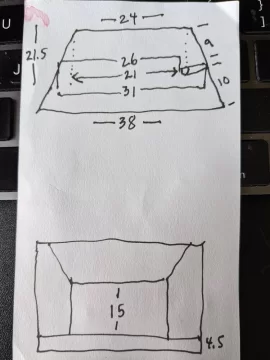 24
9
21.5
26
21
31
10
38
15
4.5
U
J